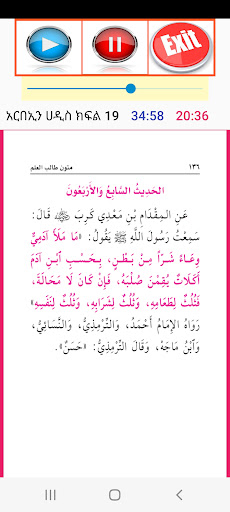 Exit
አርበኢን ሀዲስ ክፍል 19 34:58 20:36
١٣٦ متون طالب العلم
الحَدِيثُ السَّابِعُ وَالأَرْبَعُونَ
عَنِ المِقْدَامِ بْنِ مَعْدِي كَرِبَ ﷺ قَالَ:
سَمِعْتُ رَسُولَ اللَّهِ ﷺ يَقُولُ: «مَا مَلَأَ آدَمِيٌّ
وِعَاءً شَرّاً مِنْ بَطْنٍ، بِحَسْبِ ٱبْنِ آدَمَ
أَكَلَاتٌ يُقِمْنَ صُلْبَهُ، فَإِنْ كَانَ لَا مَحَالَةَ،
فَثُلُثٌ لِطَعَامِهِ، وَثُلُثٌ لِشَرَابِهِ، وَثُلُثٌ لِنَفَسِهِ»
رَوَاهُ الإِمَامُ أَحْمَدُ، وَالتِّرْمِذِيُّ، وَالنَّسَائِيُّ،
وَٱبْنُ مَاجَهْ، وَقَالَ التِّرْمِذِيُّ: «حَسَنٌ».